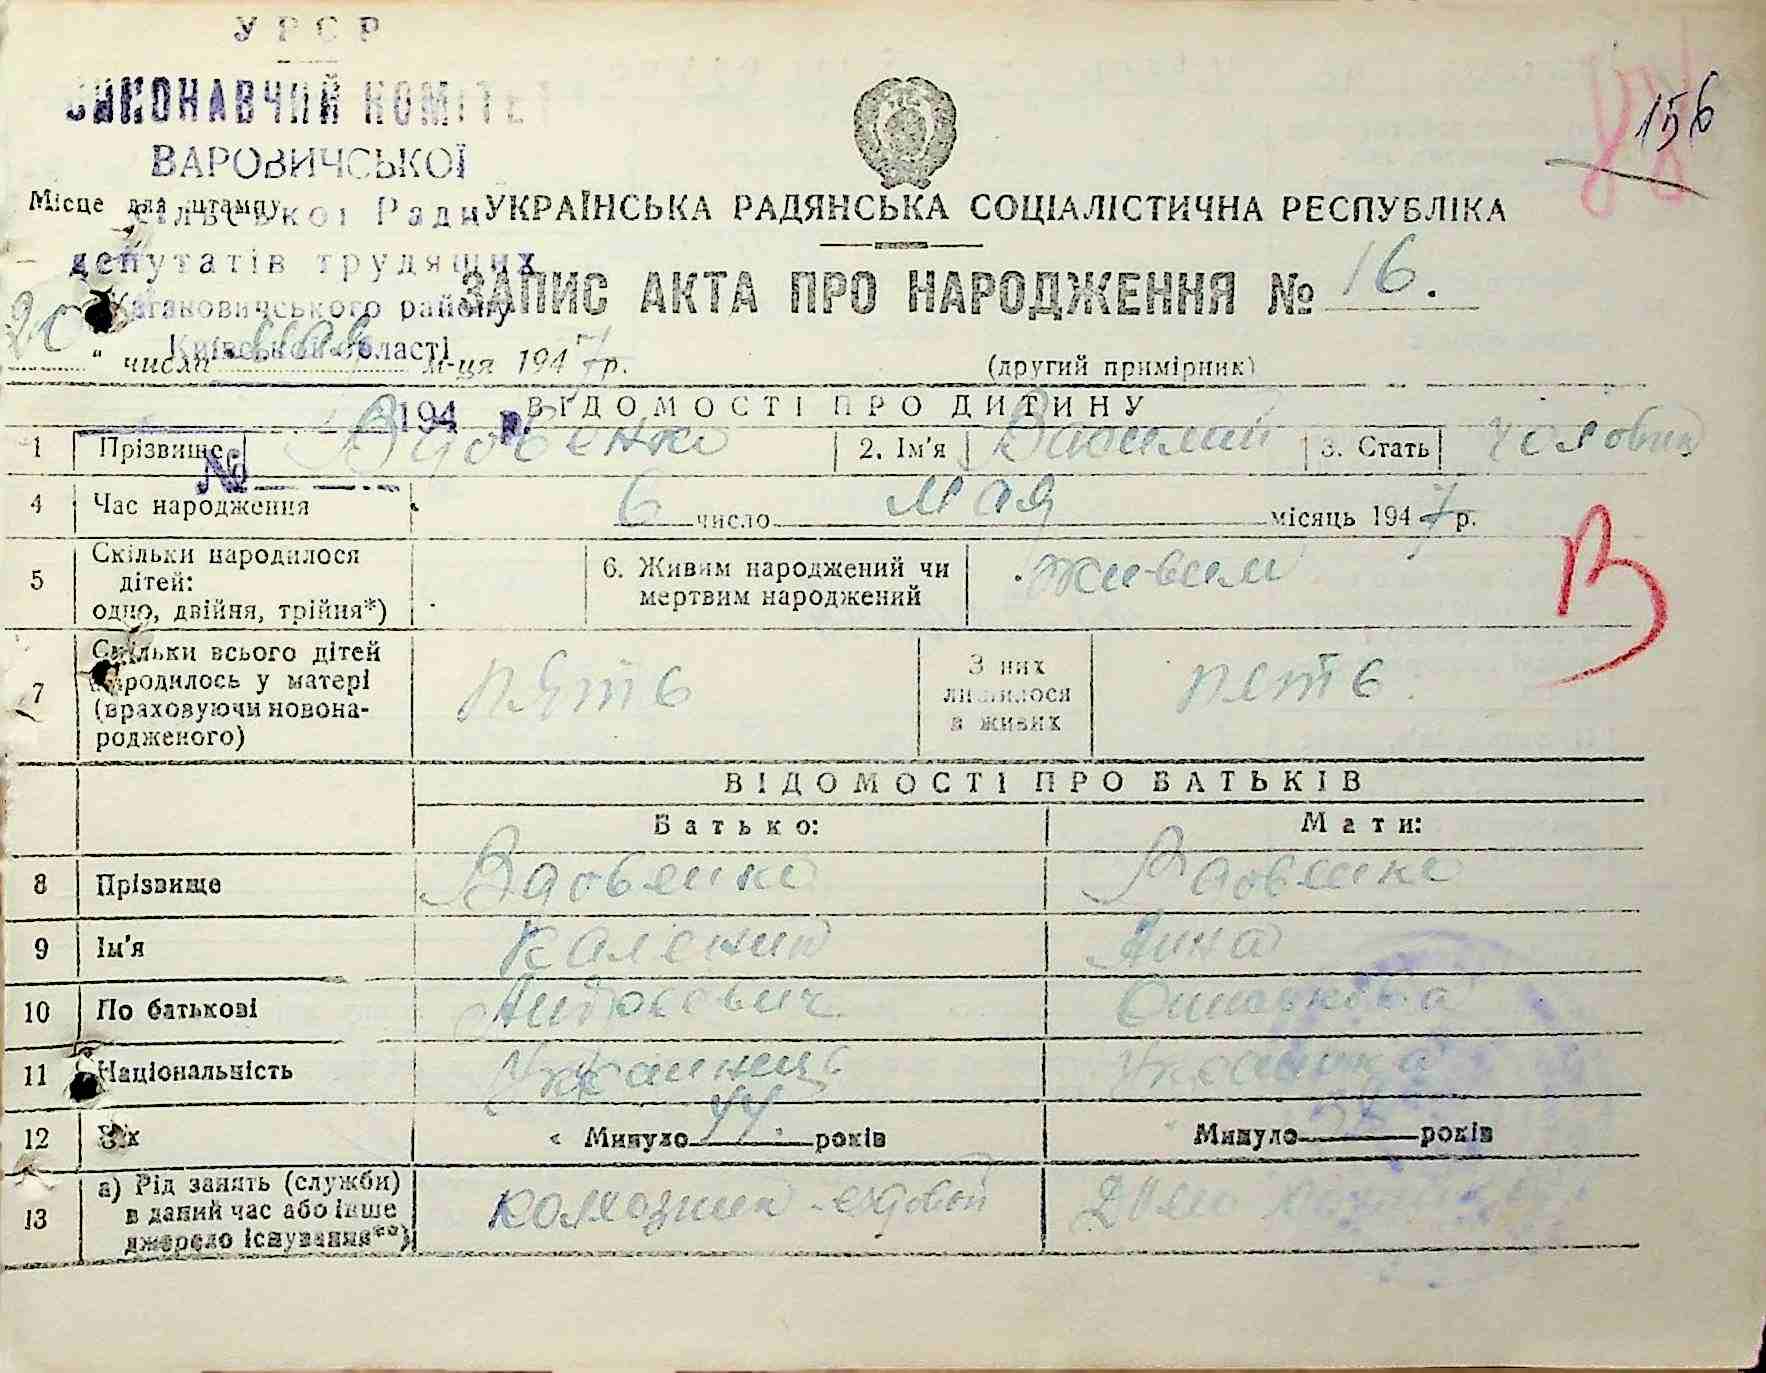 УРСР
ВИКОНАВЧИЙ КОМІТЕТ
ВАРОВИЧСЬКОЇ
Місце для штампу
сільської Ради
УКРАЇНСЬКА РАДЯНСЬКА СОЦІАЛІСТИЧНА РЕСПУБЛІКА
депутатів трудящих
ЗАПИС АКТА ПРО НАРОДЖЕННЯ № 16.
Кагановичського району
Київської області
20 " числа мая м-ця 1947 р.
(другий примірник)
156
194 р.
№
ВІДОМОСТІ ПРО ДИТИНУ
1 Прізвище Вдовенко 2. Ім'я Василий 3. Стать
4 Час народження 6 число мая місяць 1947 р.
5 Скільки народилося дітей: одно, двійня, трійня*) 6. Живим народжений чи мертвим народжений живим
В
7 Скільки всього дітей народилось у матері (враховуючи новонародженого) пять З них лишилося в живих пять
ВІДОМОСТІ ПРО БАТЬКІВ
Батько: Мати:
8 Прізвище Вдовенко Вдовенко
9 Ім'я Каленик Анна
10 По батькові
11 Національність Українець Українка
12 Вік Минуло 44 років Минуло років
13 а) Рід занять (служби) в даний час або інше джерело існування**) колхозник - ездовой Домохозяйка